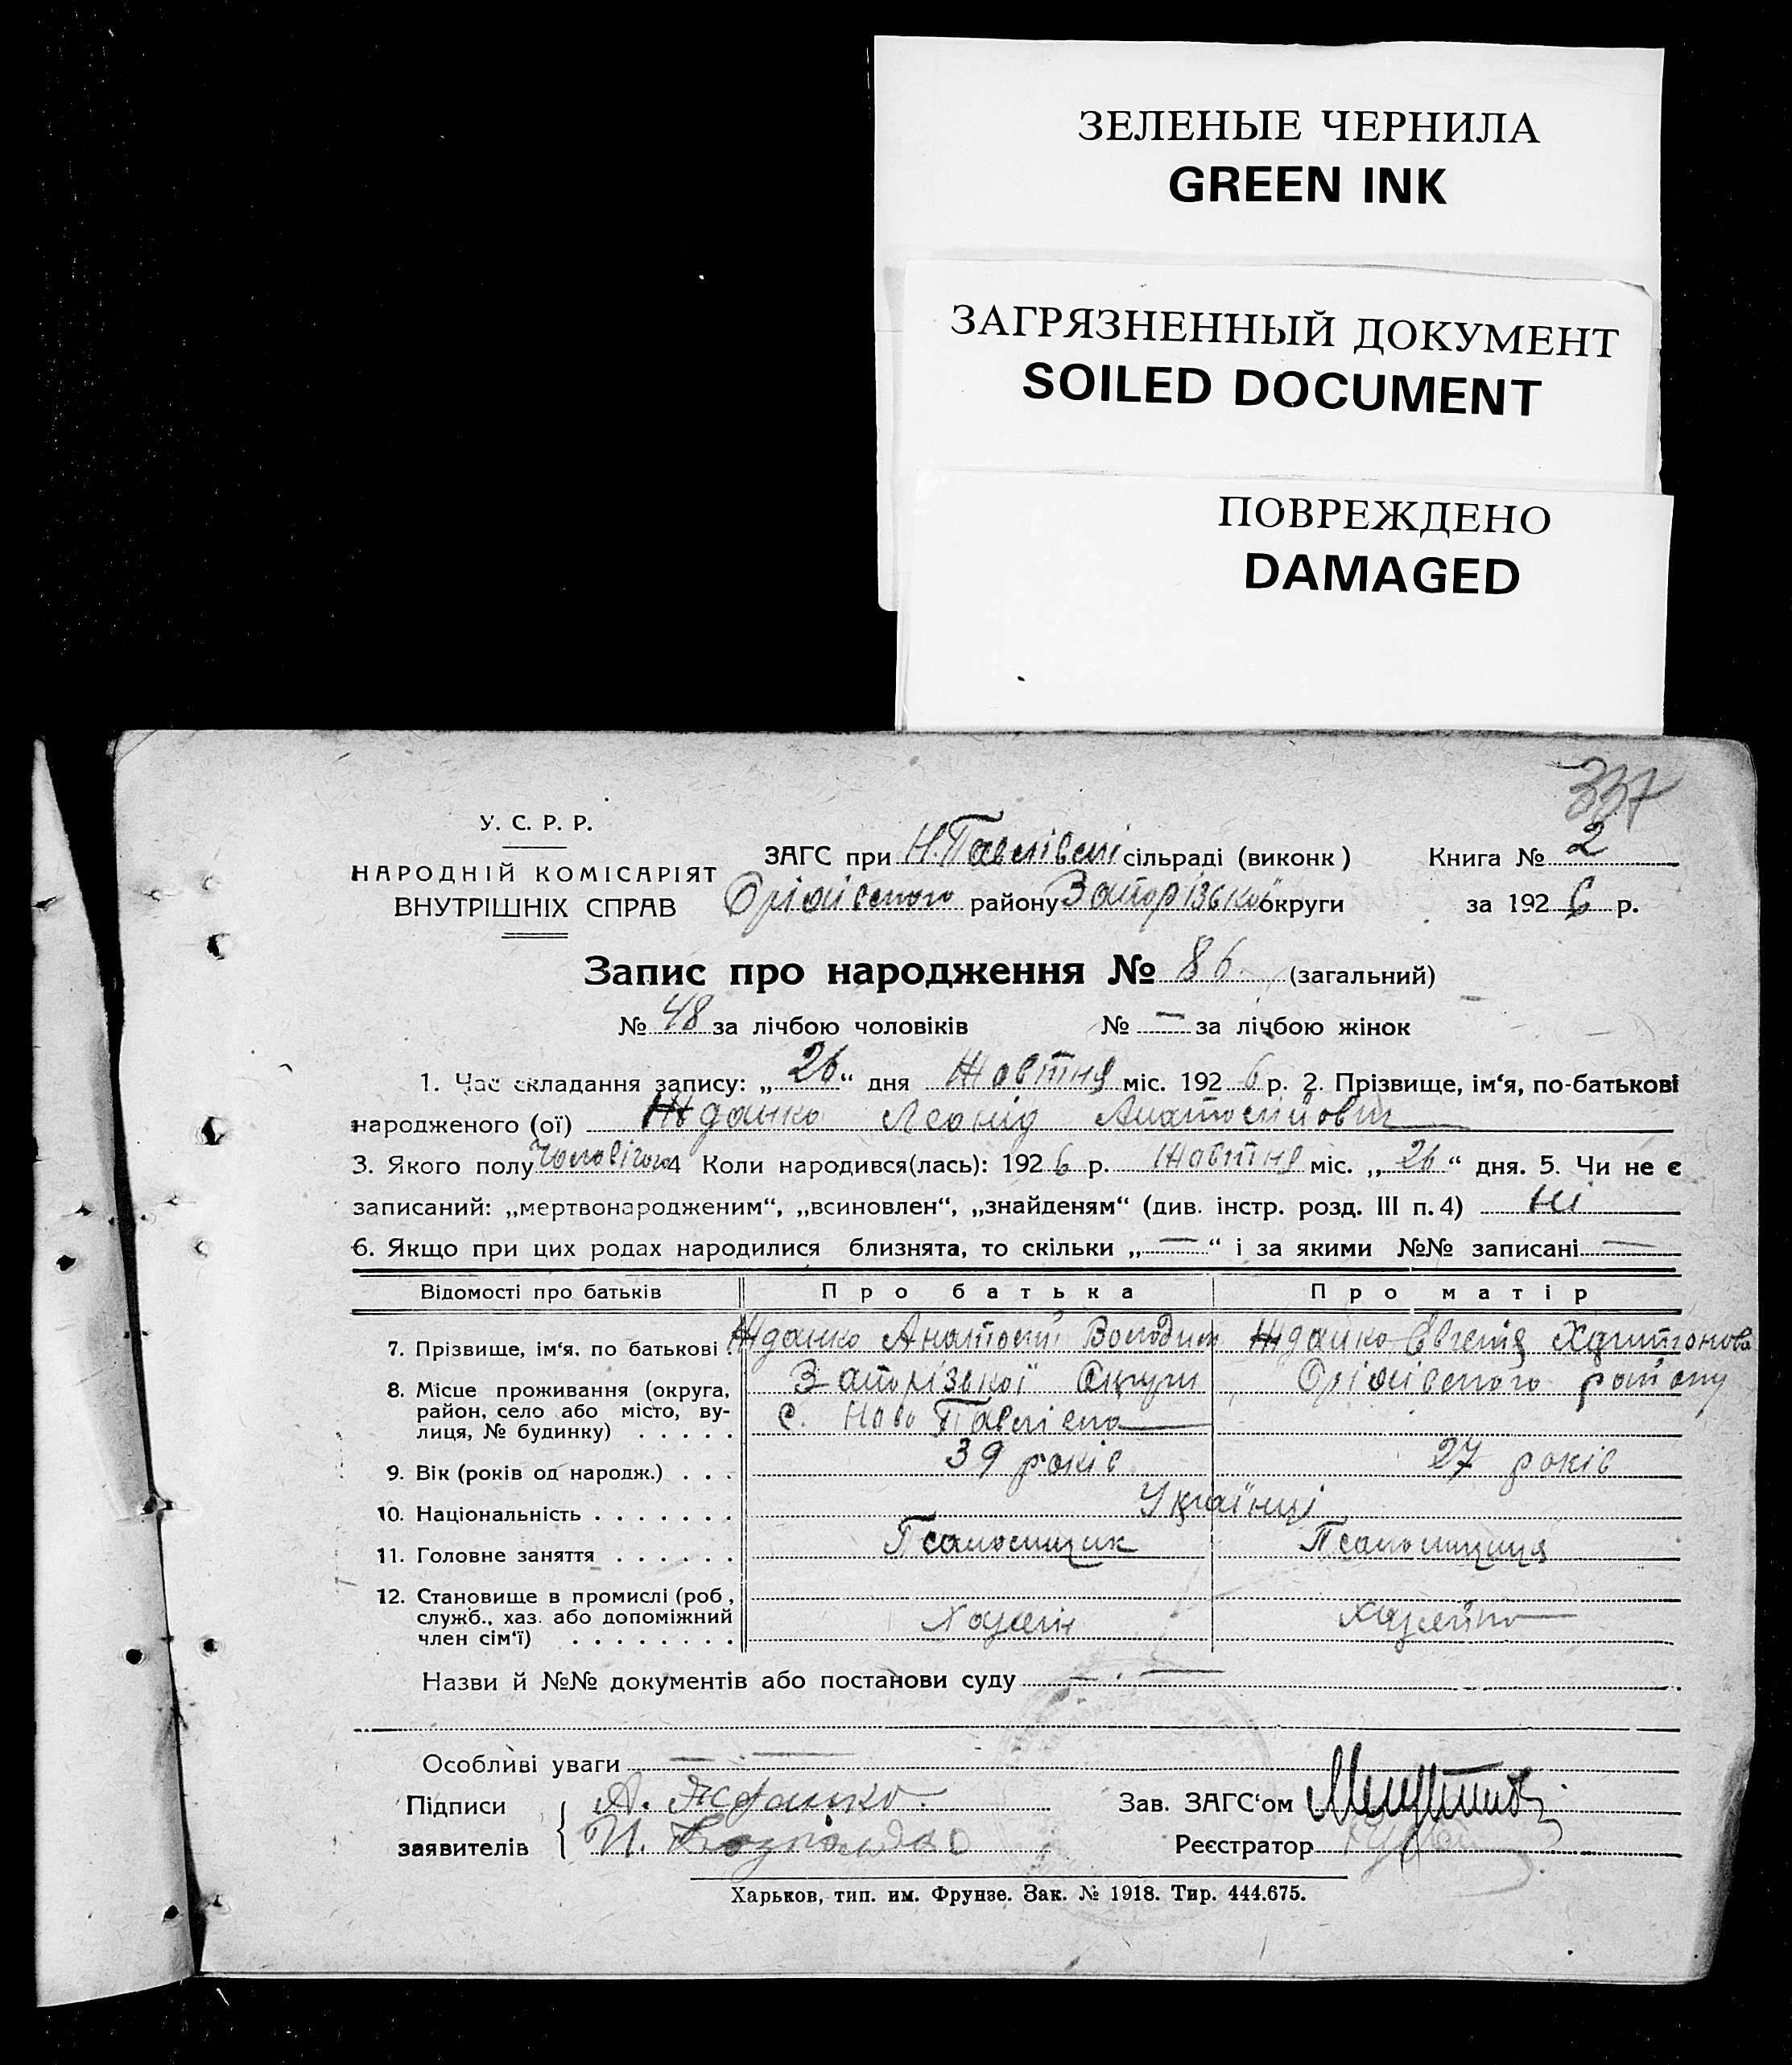 ЗЕЛЕНЫЕ ЧЕРНИЛА
GREEN INK
ЗАГРЯЗНЕННЫЙ ДОКУМЕНТ
SOILED DOCUMENT
ПОВРЕЖДЕНО
DAMAGED
337
У. С. Р. Р.
НАРОДНІЙ КОМІСАРІЯТ
ВНУТРІШНІХ СПРАВ
ЗАГС при Н. Павлівській сільраді (виконк) Книга № 2
Оріхівського району Запорізької округи за 1926 р.
Запис про народження № 86 (загальний)
№ 48 за лічбою чоловіків № — за лічбою жінок
1. Час складання запису: „26“ дня Жовтня міс. 1926 р. 2. Прізвище, ім‘я, по-батькові
народженого (ої) Жданко Леонід Анатолійович
3. Якого полу Чоловічого 4 Коли народився(лась): 1926 р. Жовтня міс. „26“ дня. 5. Чи не є
записаний: „мертвонародженим“, „всиновлен“, „знайденям“ (див. інстр. розд. III п. 4) Ні
6. Якщо при цих родах народилися близнята, то скільки „—“ і за якими №№ записані —
Відомості про батьків Про батька Про матір
7. Прізвище, ім‘я, по батькові Жданко Анатолій Володим Жданко Євгенія Харитонова
8. Місце проживання (округа, Запорізької Округи Оріхівського району
район, село або місто, ву- с. Ново Павлівка
лиця, № будинку) . . . . .
9. Вік (років од народж.) . . . 39 років 27 років
10. Національність . . . . . . . Українці
11. Головне заняття . . . . . .
12. Становище в промислі (роб,
служб., хаз. або допоміжний Хазяїн Хазяйка
член сім‘ї) . . . . . . . .
Назви й №№ документів або постанови суду —
Особливі уваги —
Підписи А. Жданко
Зав. ЗАГС‘ом
заявителів И.
Реєстратор
Харьков, тип. им. Фрунзе. Зак. № 1918. Тир. 444.675.